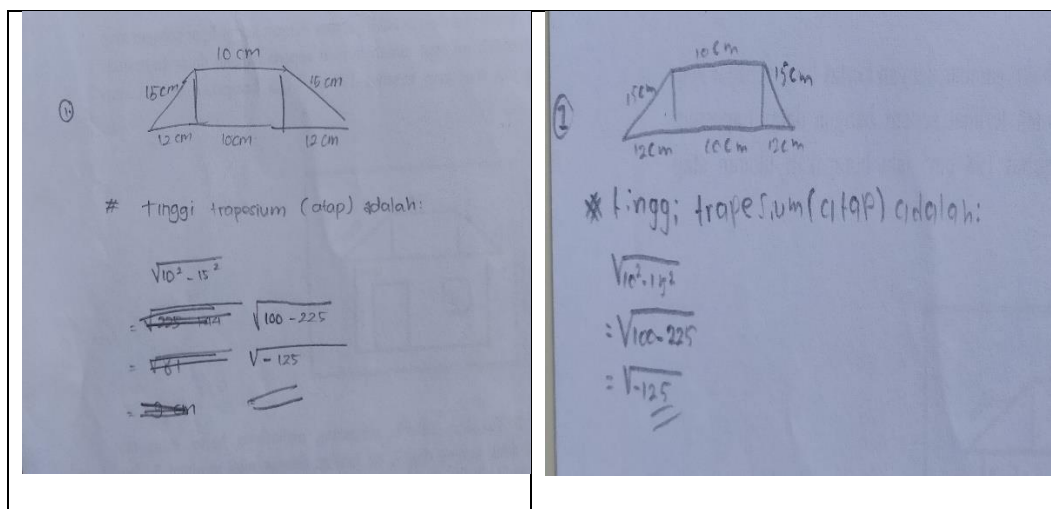 10 cm
15 cm
15 cm
1.
12 cm
10cm
12 cm
# Tinggi trapesium (atap) adalah:
√10² - 15²
= √225 - 144 √100 - 225
= √81 √-125
= 9 cm
10 cm
15cm
15cm
1
12cm
10cm
12cm
* tinggi trapesium (atap) adalah:
√10² - 15²
= √100 - 225
= √-125